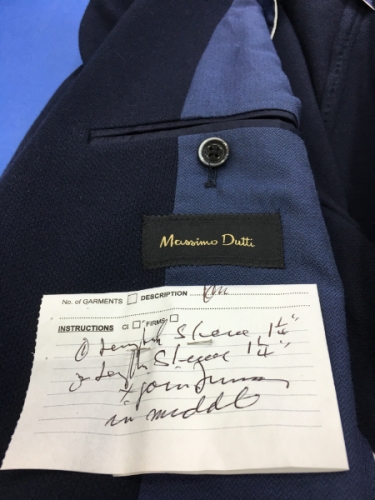 Massimo Dutti
No. of GARMENTS DESCRIPTION
INSTRUCTIONS CI FIRMS
① Length Sleeve 1¼"
Length Sleeve 1¼"
& join
in middle